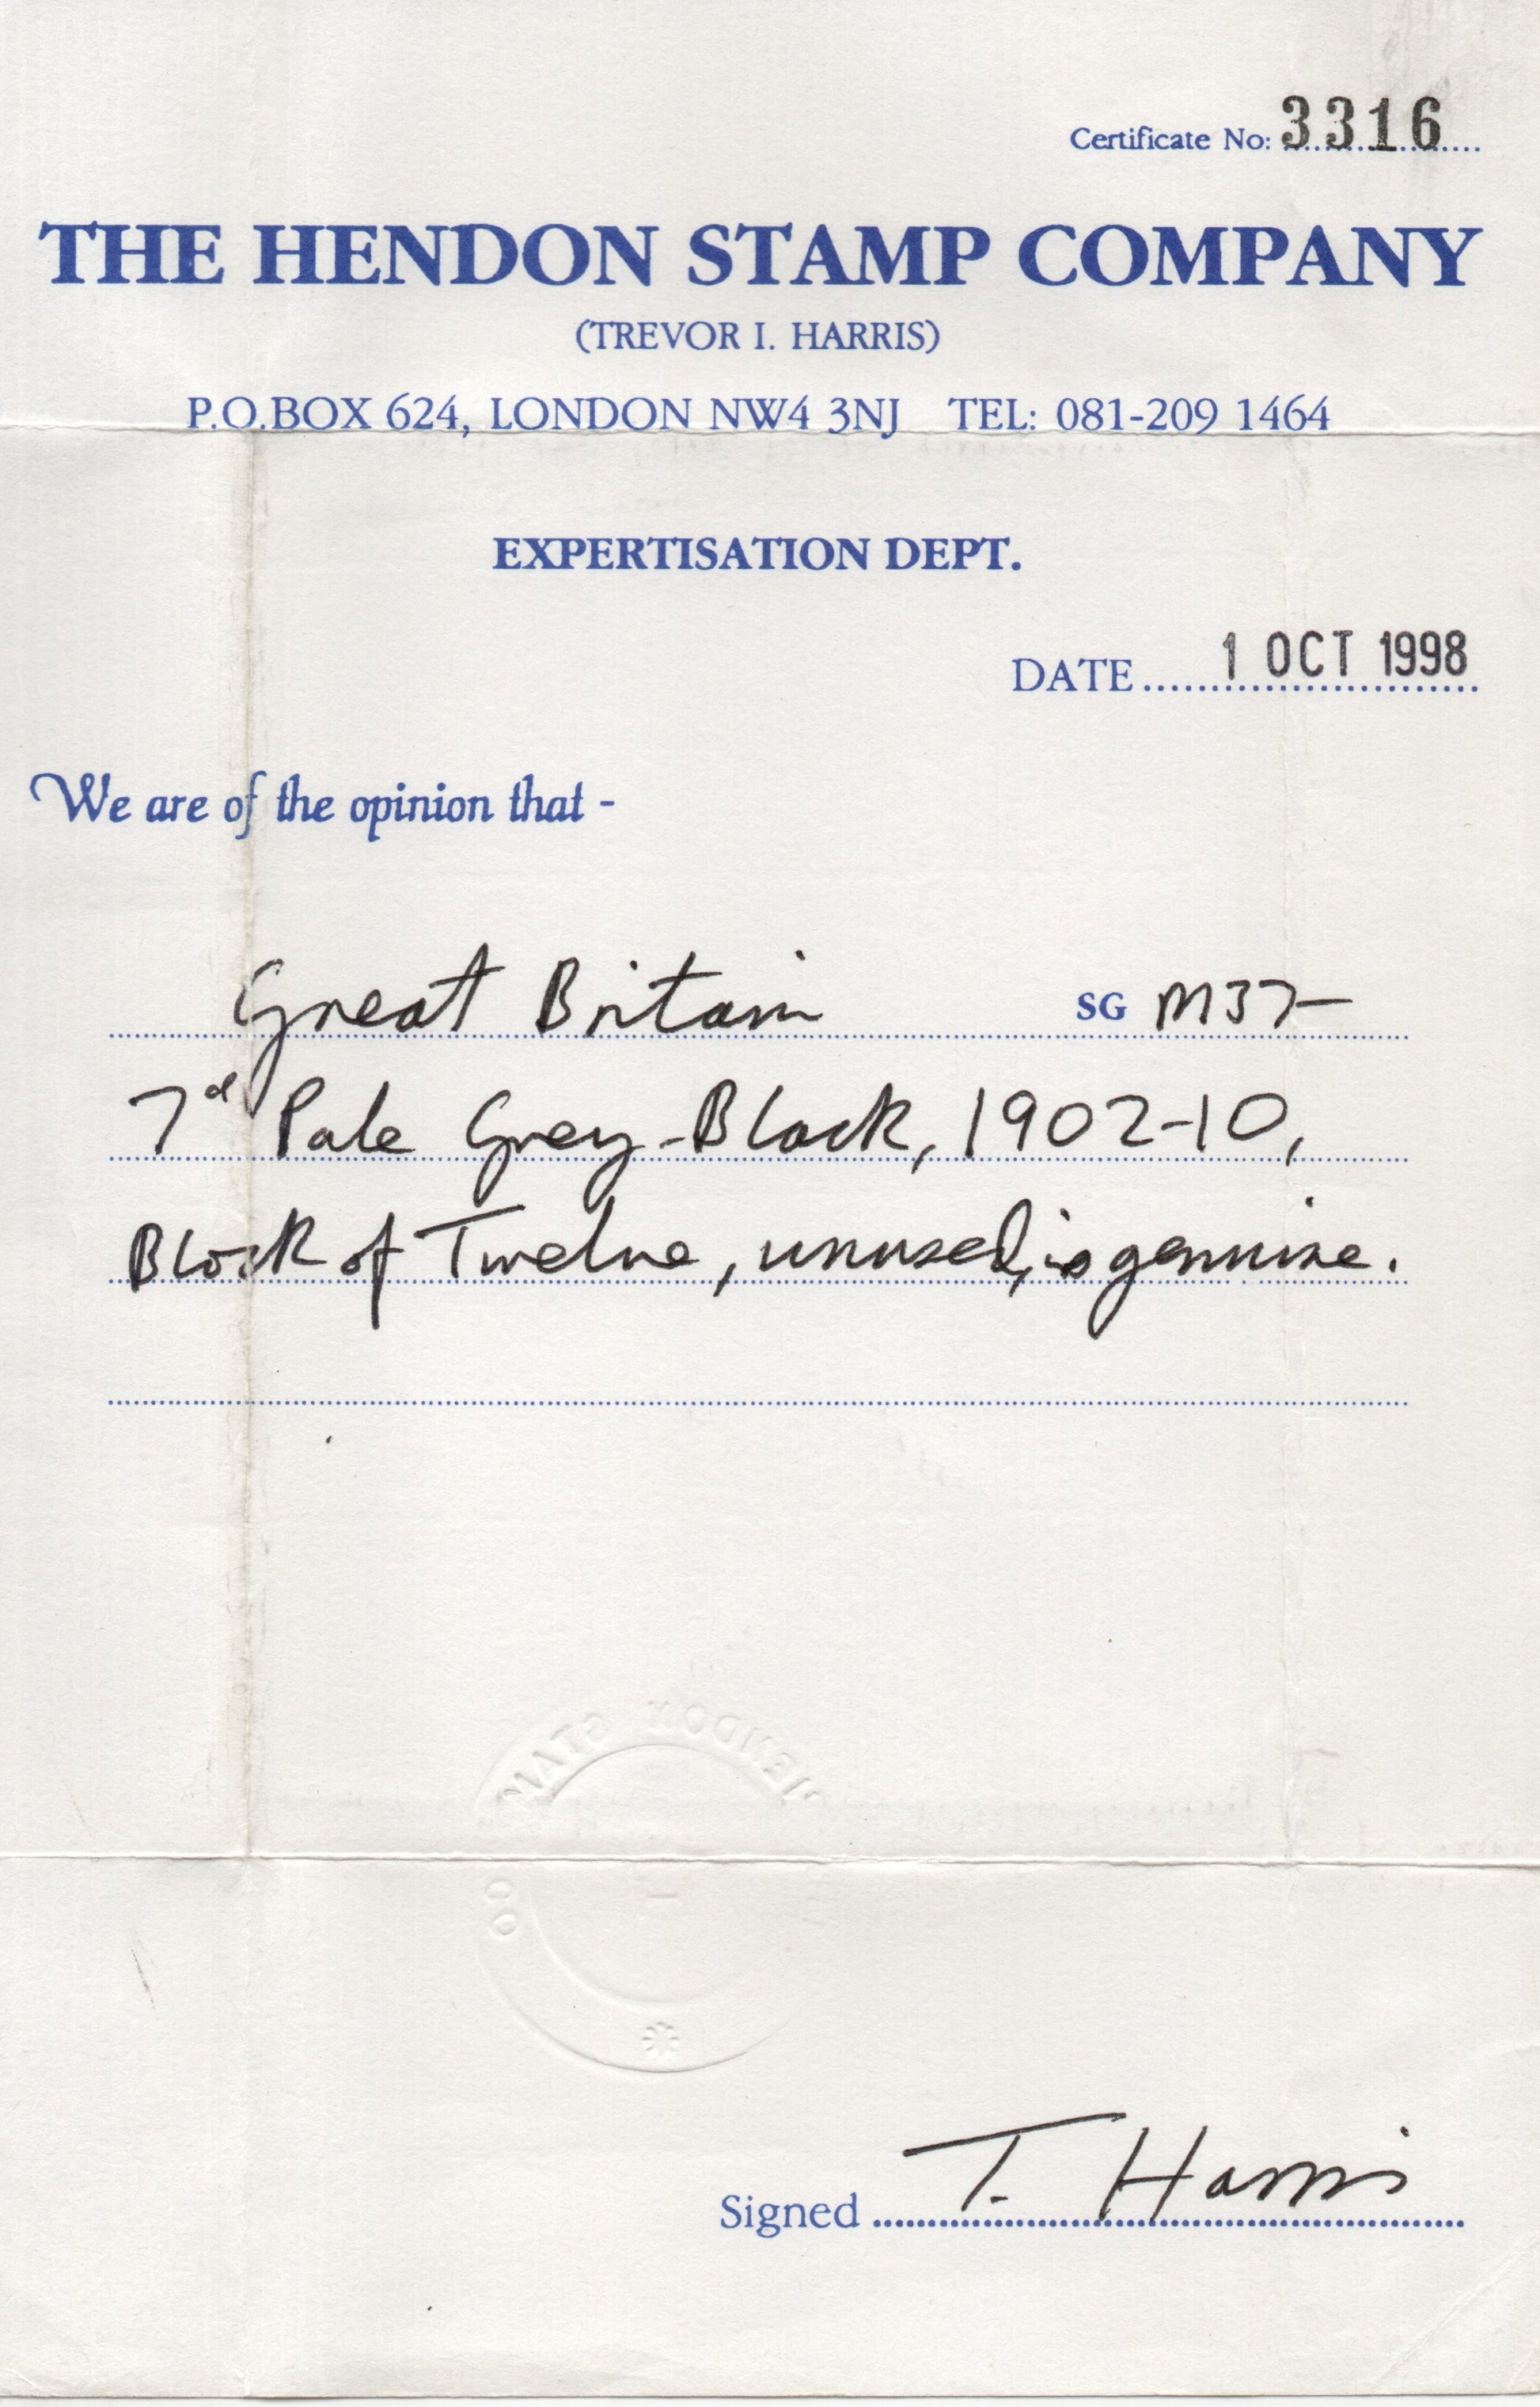 Certificate No: 3316
THE HENDON STAMP COMPANY
(TREVOR I. HARRIS)
P.O.BOX 624, LONDON NW4 3NJ TEL: 081-209 1464
EXPERTISATION DEPT.
DATE 1 OCT 1998
We are of the opinion that -
Great Britain SG M37-
7d Pale Grey-Black, 1902-10,
Block of Twelve, unused, is genuine.
HENDON STAMP CO
Signed T. Harris